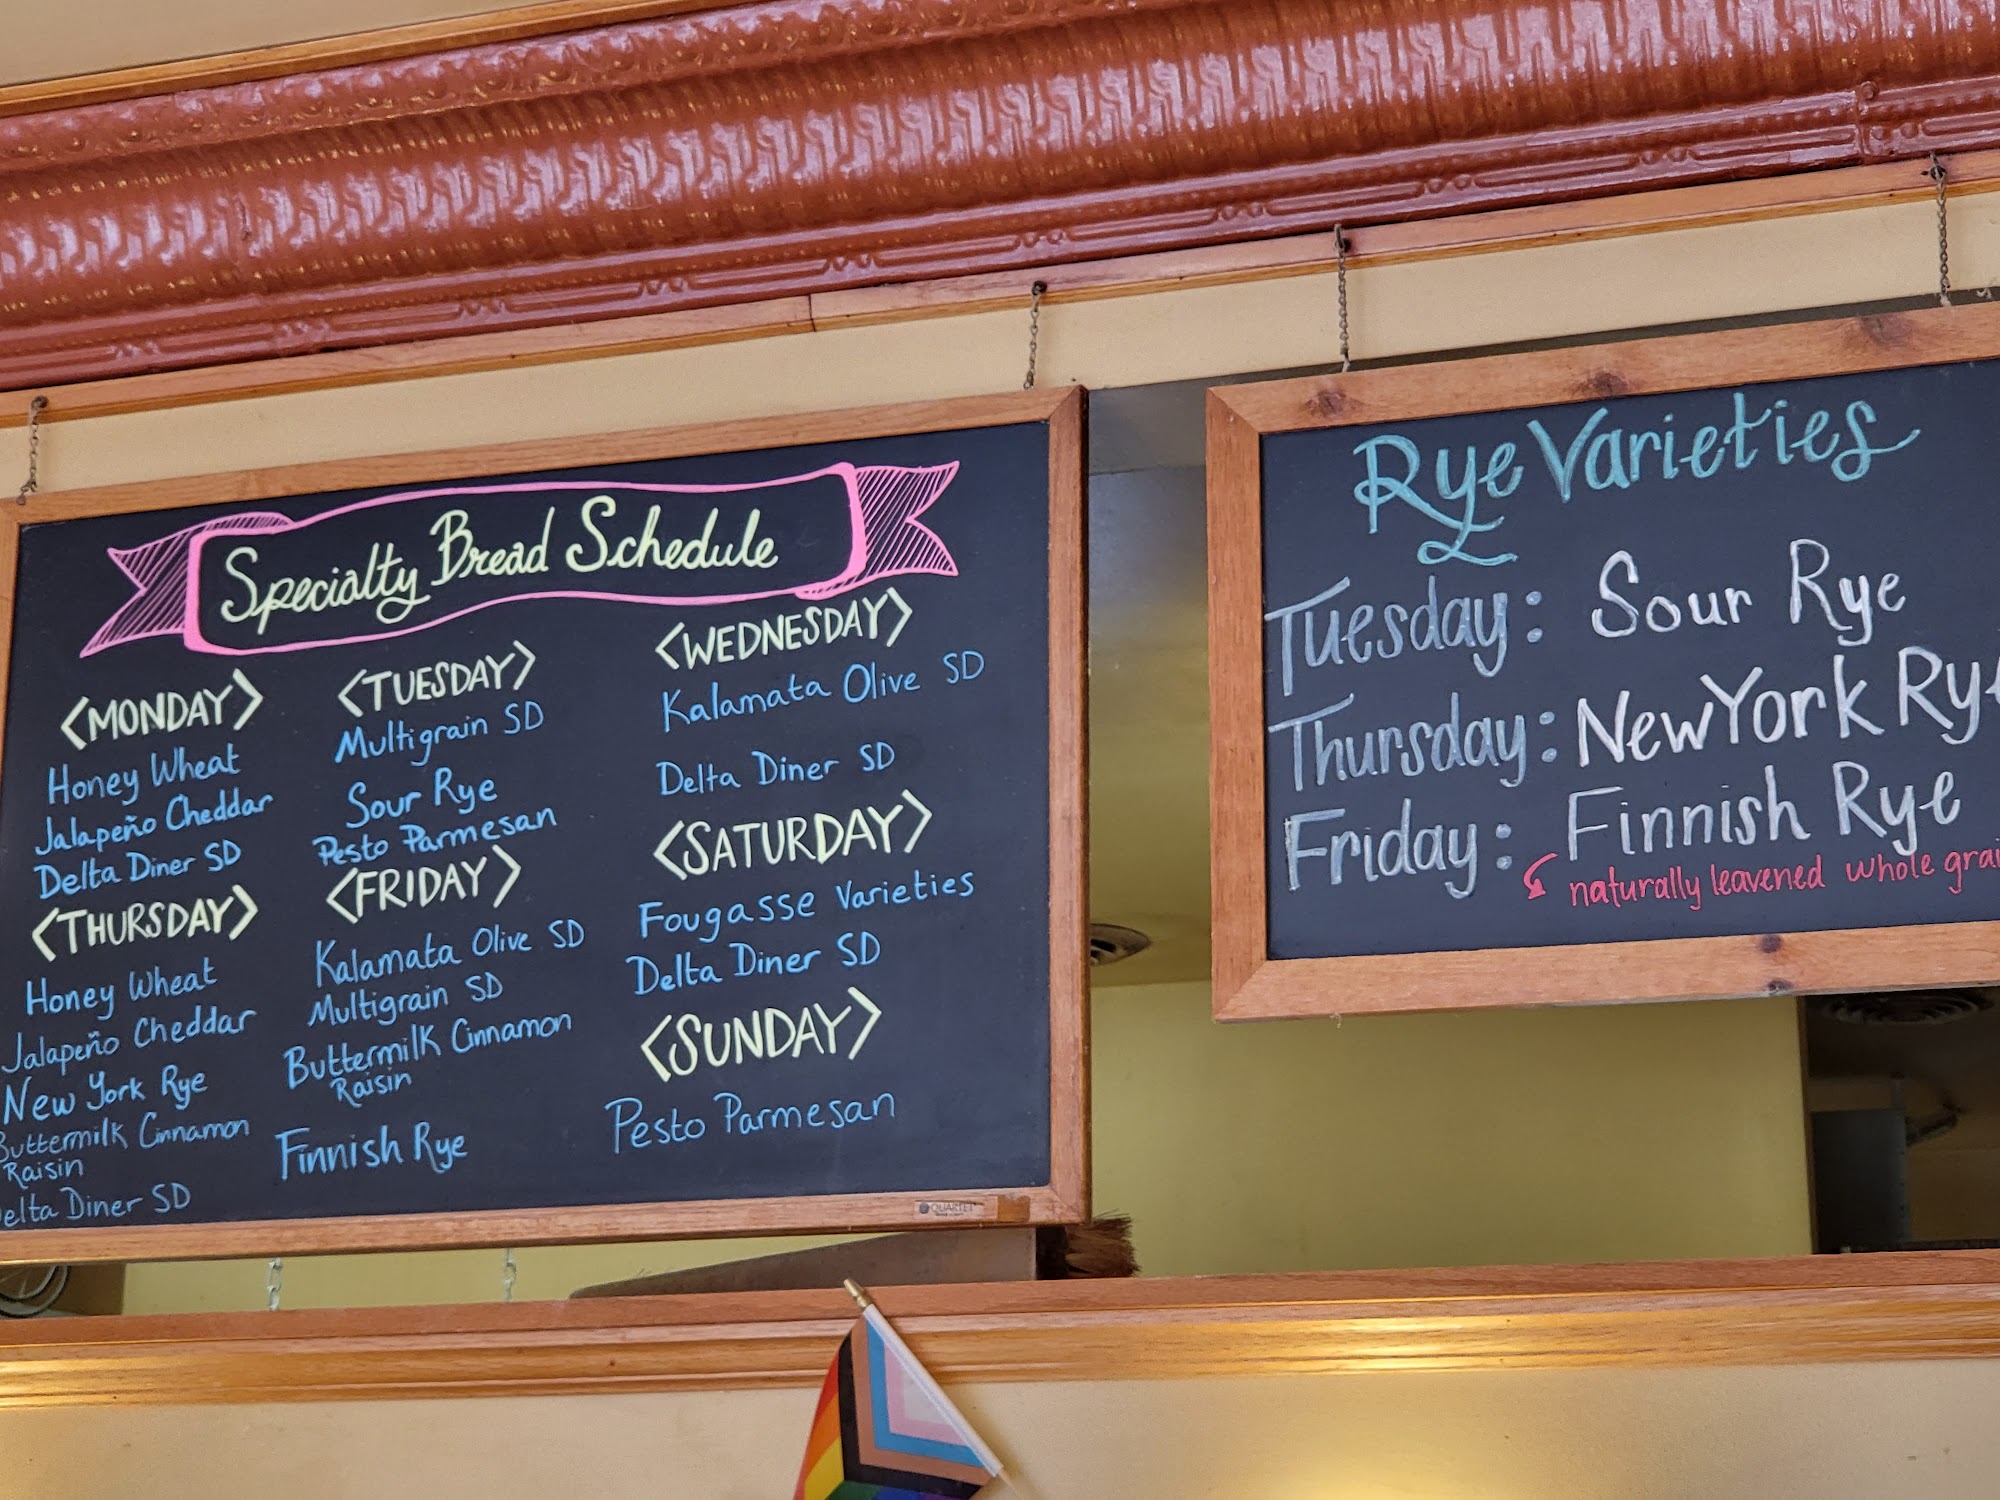 Specialty Bread Schedule
<MONDAY>
Honey Wheat
Jalapeño Cheddar
Delta Diner SD
<TUESDAY>
Multigrain SD
Sour Rye
Pesto Parmesan
<WEDNESDAY>
Kalamata Olive SD
Delta Diner SD
<THURSDAY>
Honey Wheat
Jalapeño Cheddar
New York Rye
Buttermilk Cinnamon
Raisin
Delta Diner SD
<FRIDAY>
Kalamata Olive SD
Multigrain SD
Buttermilk Cinnamon
Raisin
Finnish Rye
<SATURDAY>
Fougasse Varieties
Delta Diner SD
<SUNDAY>
Pesto Parmesan
QUARTET
Rye Varieties
Tuesday: Sour Rye
Thursday: New York Rye
Friday: Finnish Rye
naturally leavened whole grai